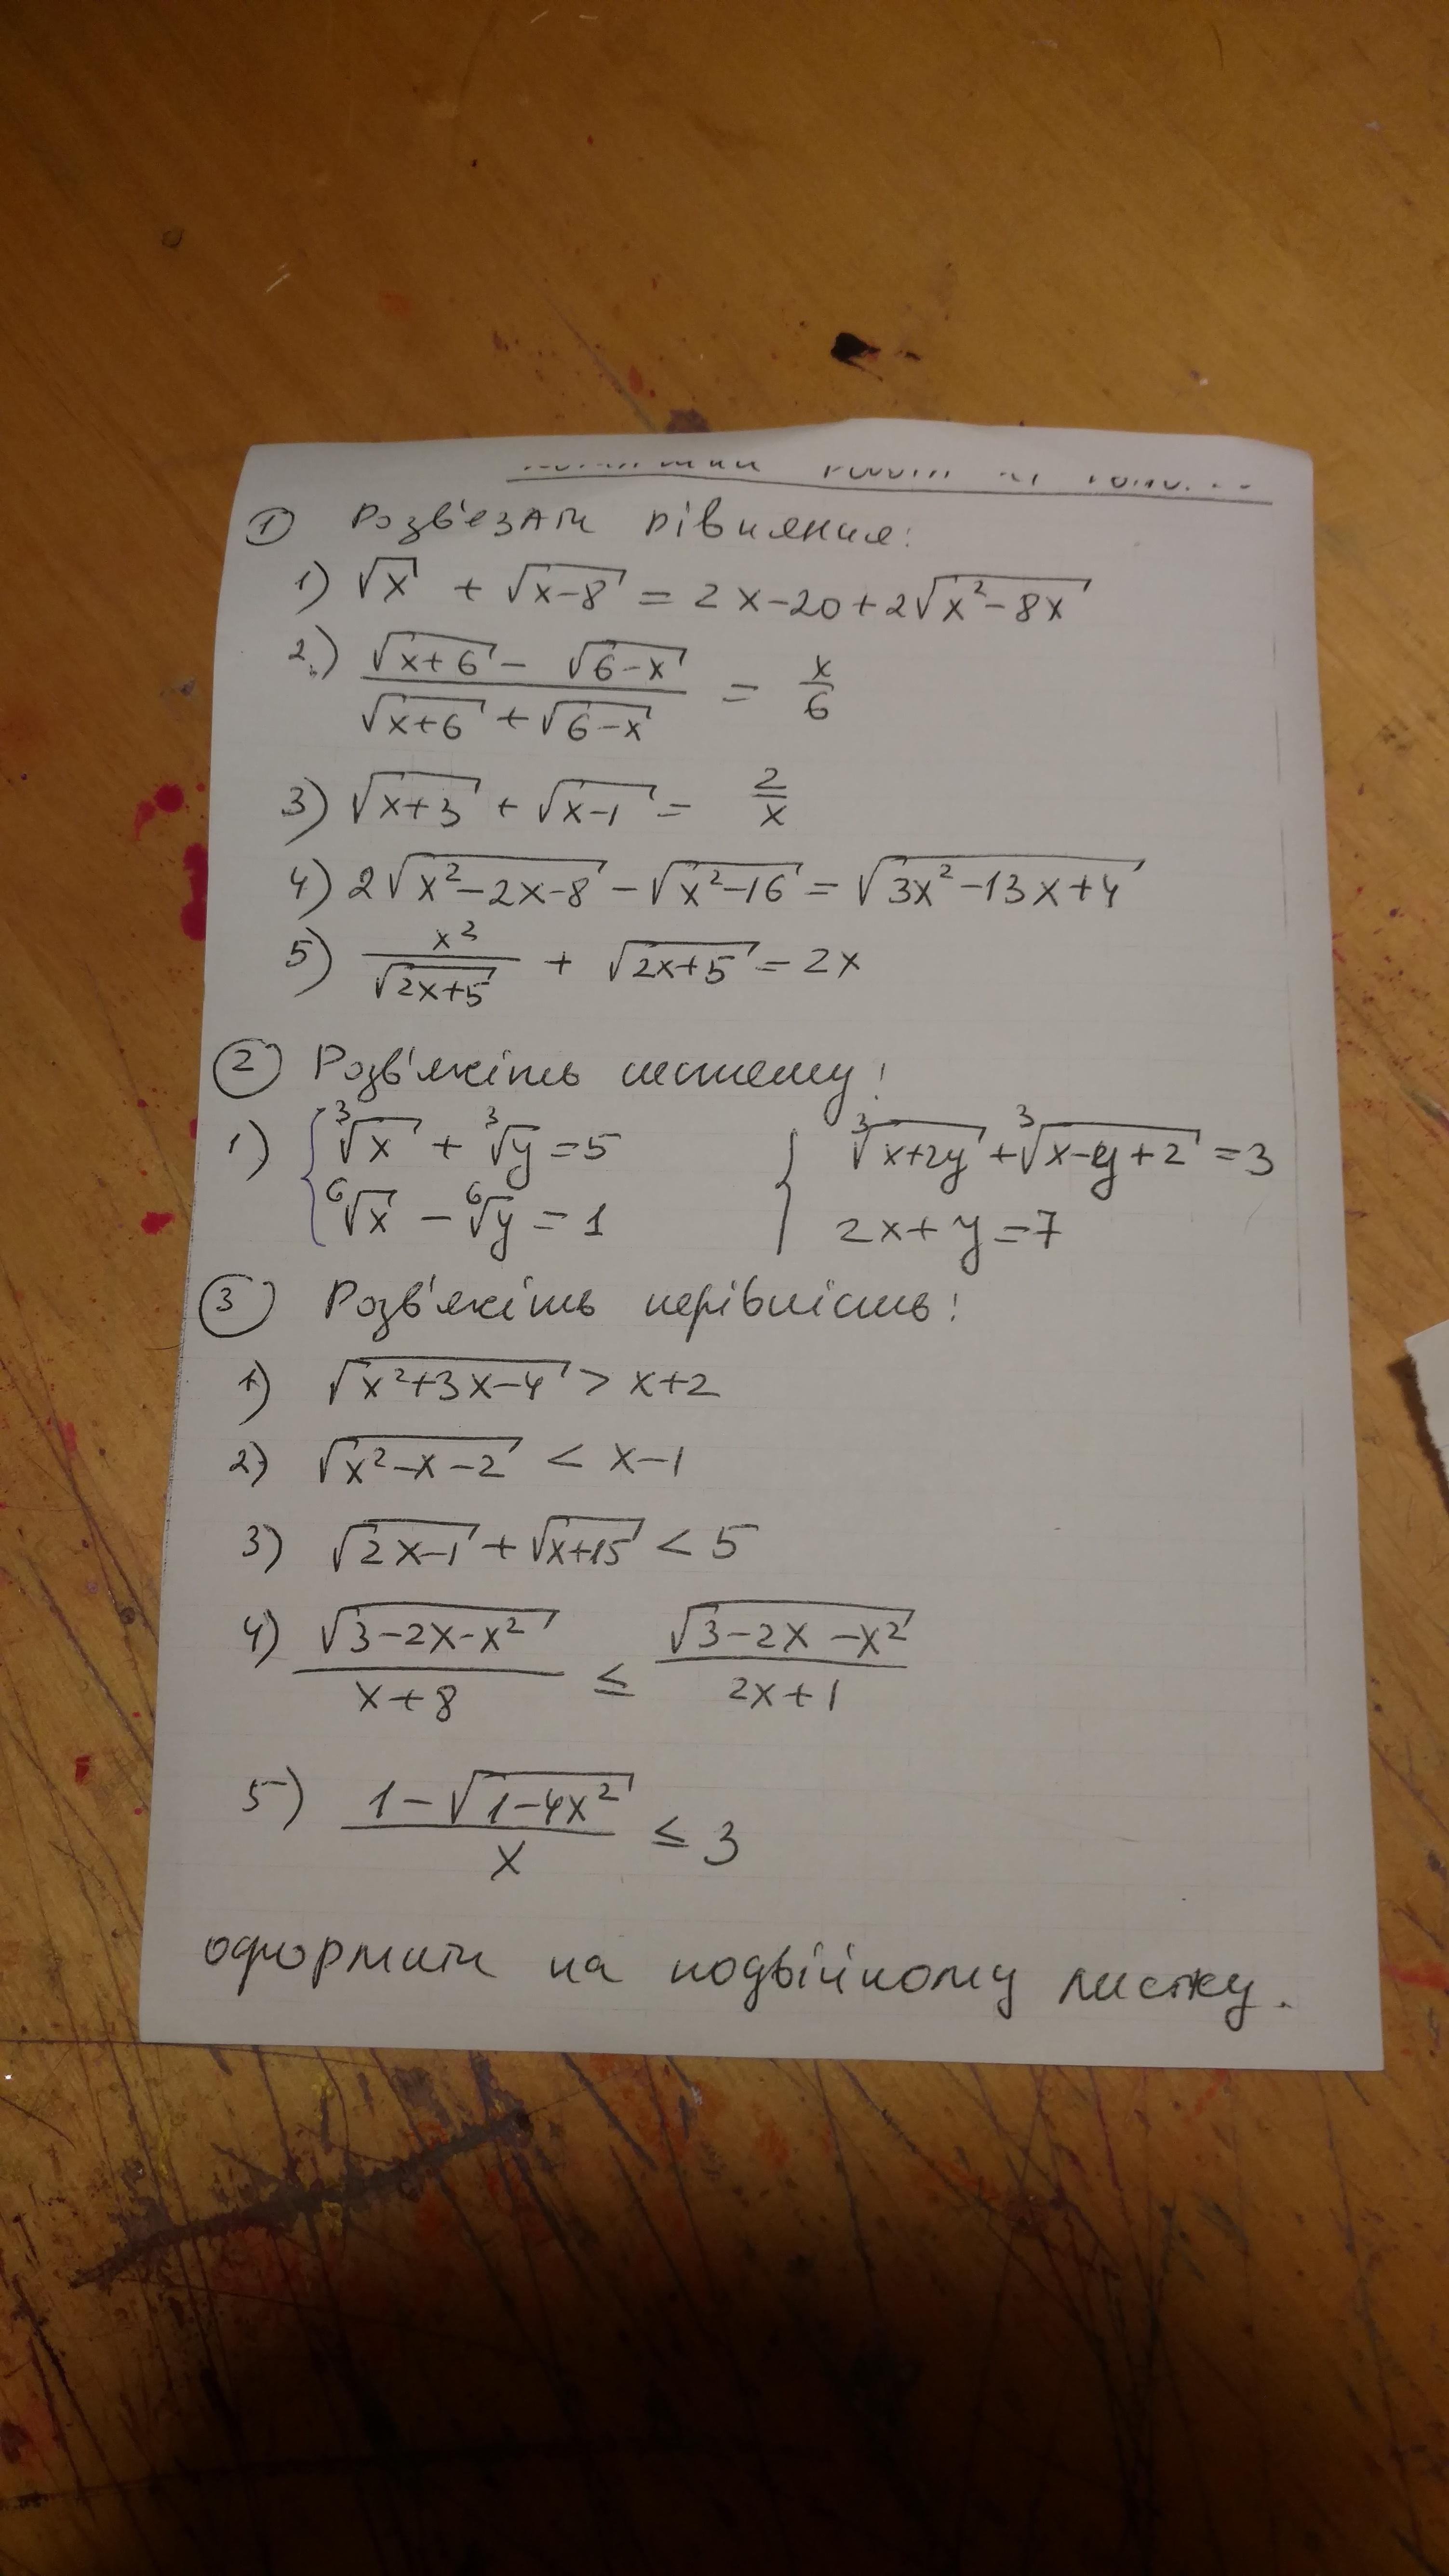 ① Розв'езати рівняння:
1) √x + √(x-8) = 2x-20+2√(x²-8x)
2.) (√(x+6) - √(6-x))/(√(x+6) + √(6-x)) = x/6
3) √(x+3) + √(x-1) = 2/x
4) 2√(x²-2x-8) - √(x²-16) = √(3x²-13x+4)
5) x²/√(2x+5) + √(2x+5) = 2x
② Розв'яжіть систему:
1) { ∛x + ∛y = 5 { ∛(x+2y) + ∛(x-y+2) = 3
⁶√x - ⁶√y = 1 2x+y=7
③ Розв'яжіть нерівність:
1) √(x²+3x-4) > x+2
2) √(x²-x-2) < x-1
3) √(2x-1) + √(x+15) < 5
4) √(3-2x-x²)/(x+8) ≤ √(3-2x-x²)/(2x+1)
5) (1-√(1-4x²))/x ≤ 3
оформити на подвійному листку.